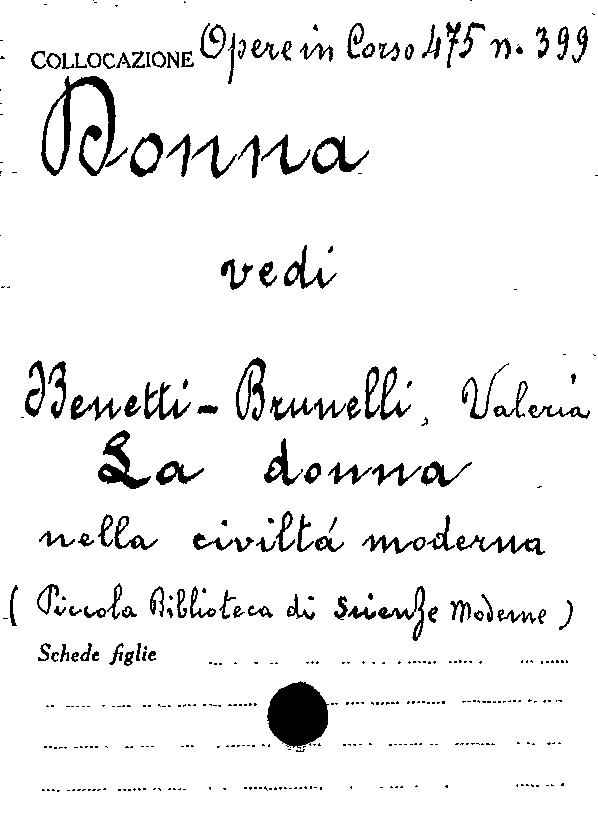 COLLOCAZIONE Opere in Corso 475 n. 399
Donna
vedi
Benetti-Brunelli, Valeria
La donna
nella civiltá moderna
(Piccola Biblioteca di Scienze Moderne)
Schede figlie